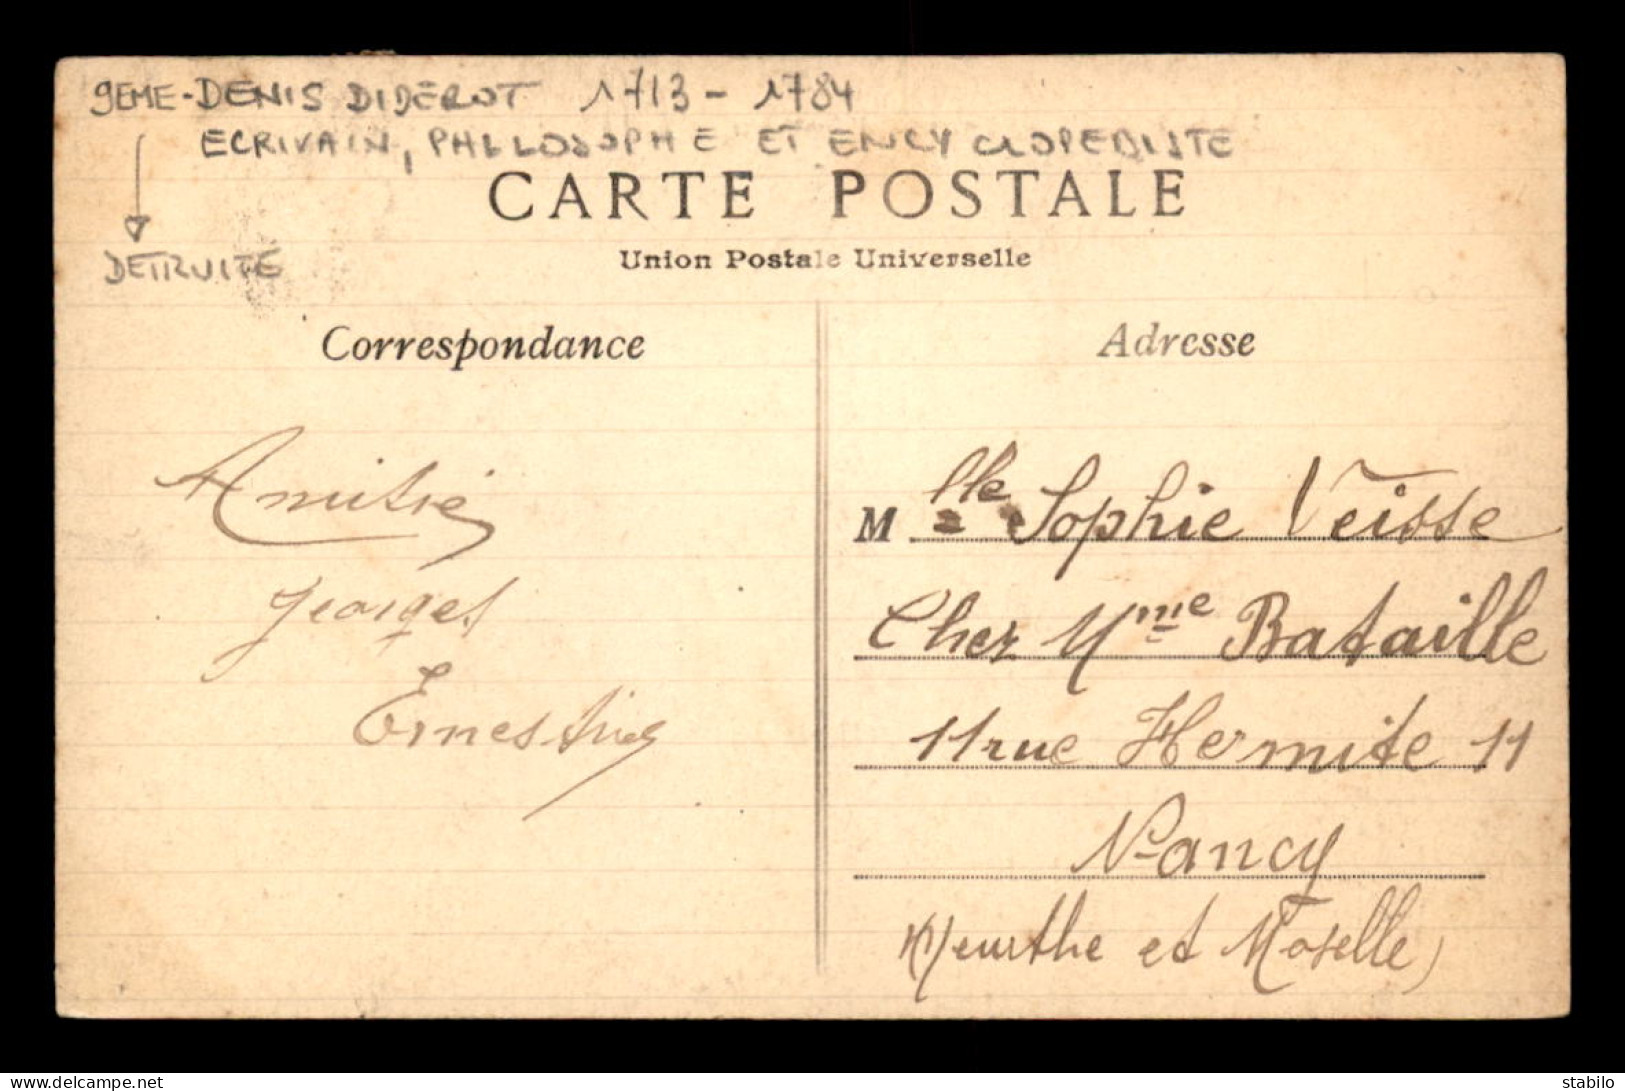 9EME - DENIS DIDEROT 1713 - 1784
ECRIVAIN, PHILOSOPHE ET ENCYCLOPEDISTE
DETRUITE
CARTE POSTALE
Union Postale Universelle
Correspondance
Adresse
Amitié
Georget
Ernestine
Mlle Sophie Veisse
Chez Mme Bataille
11 rue Hermite 11
Nancy
(Meurthe et Moselle)
www.delcampe.net
stabilo